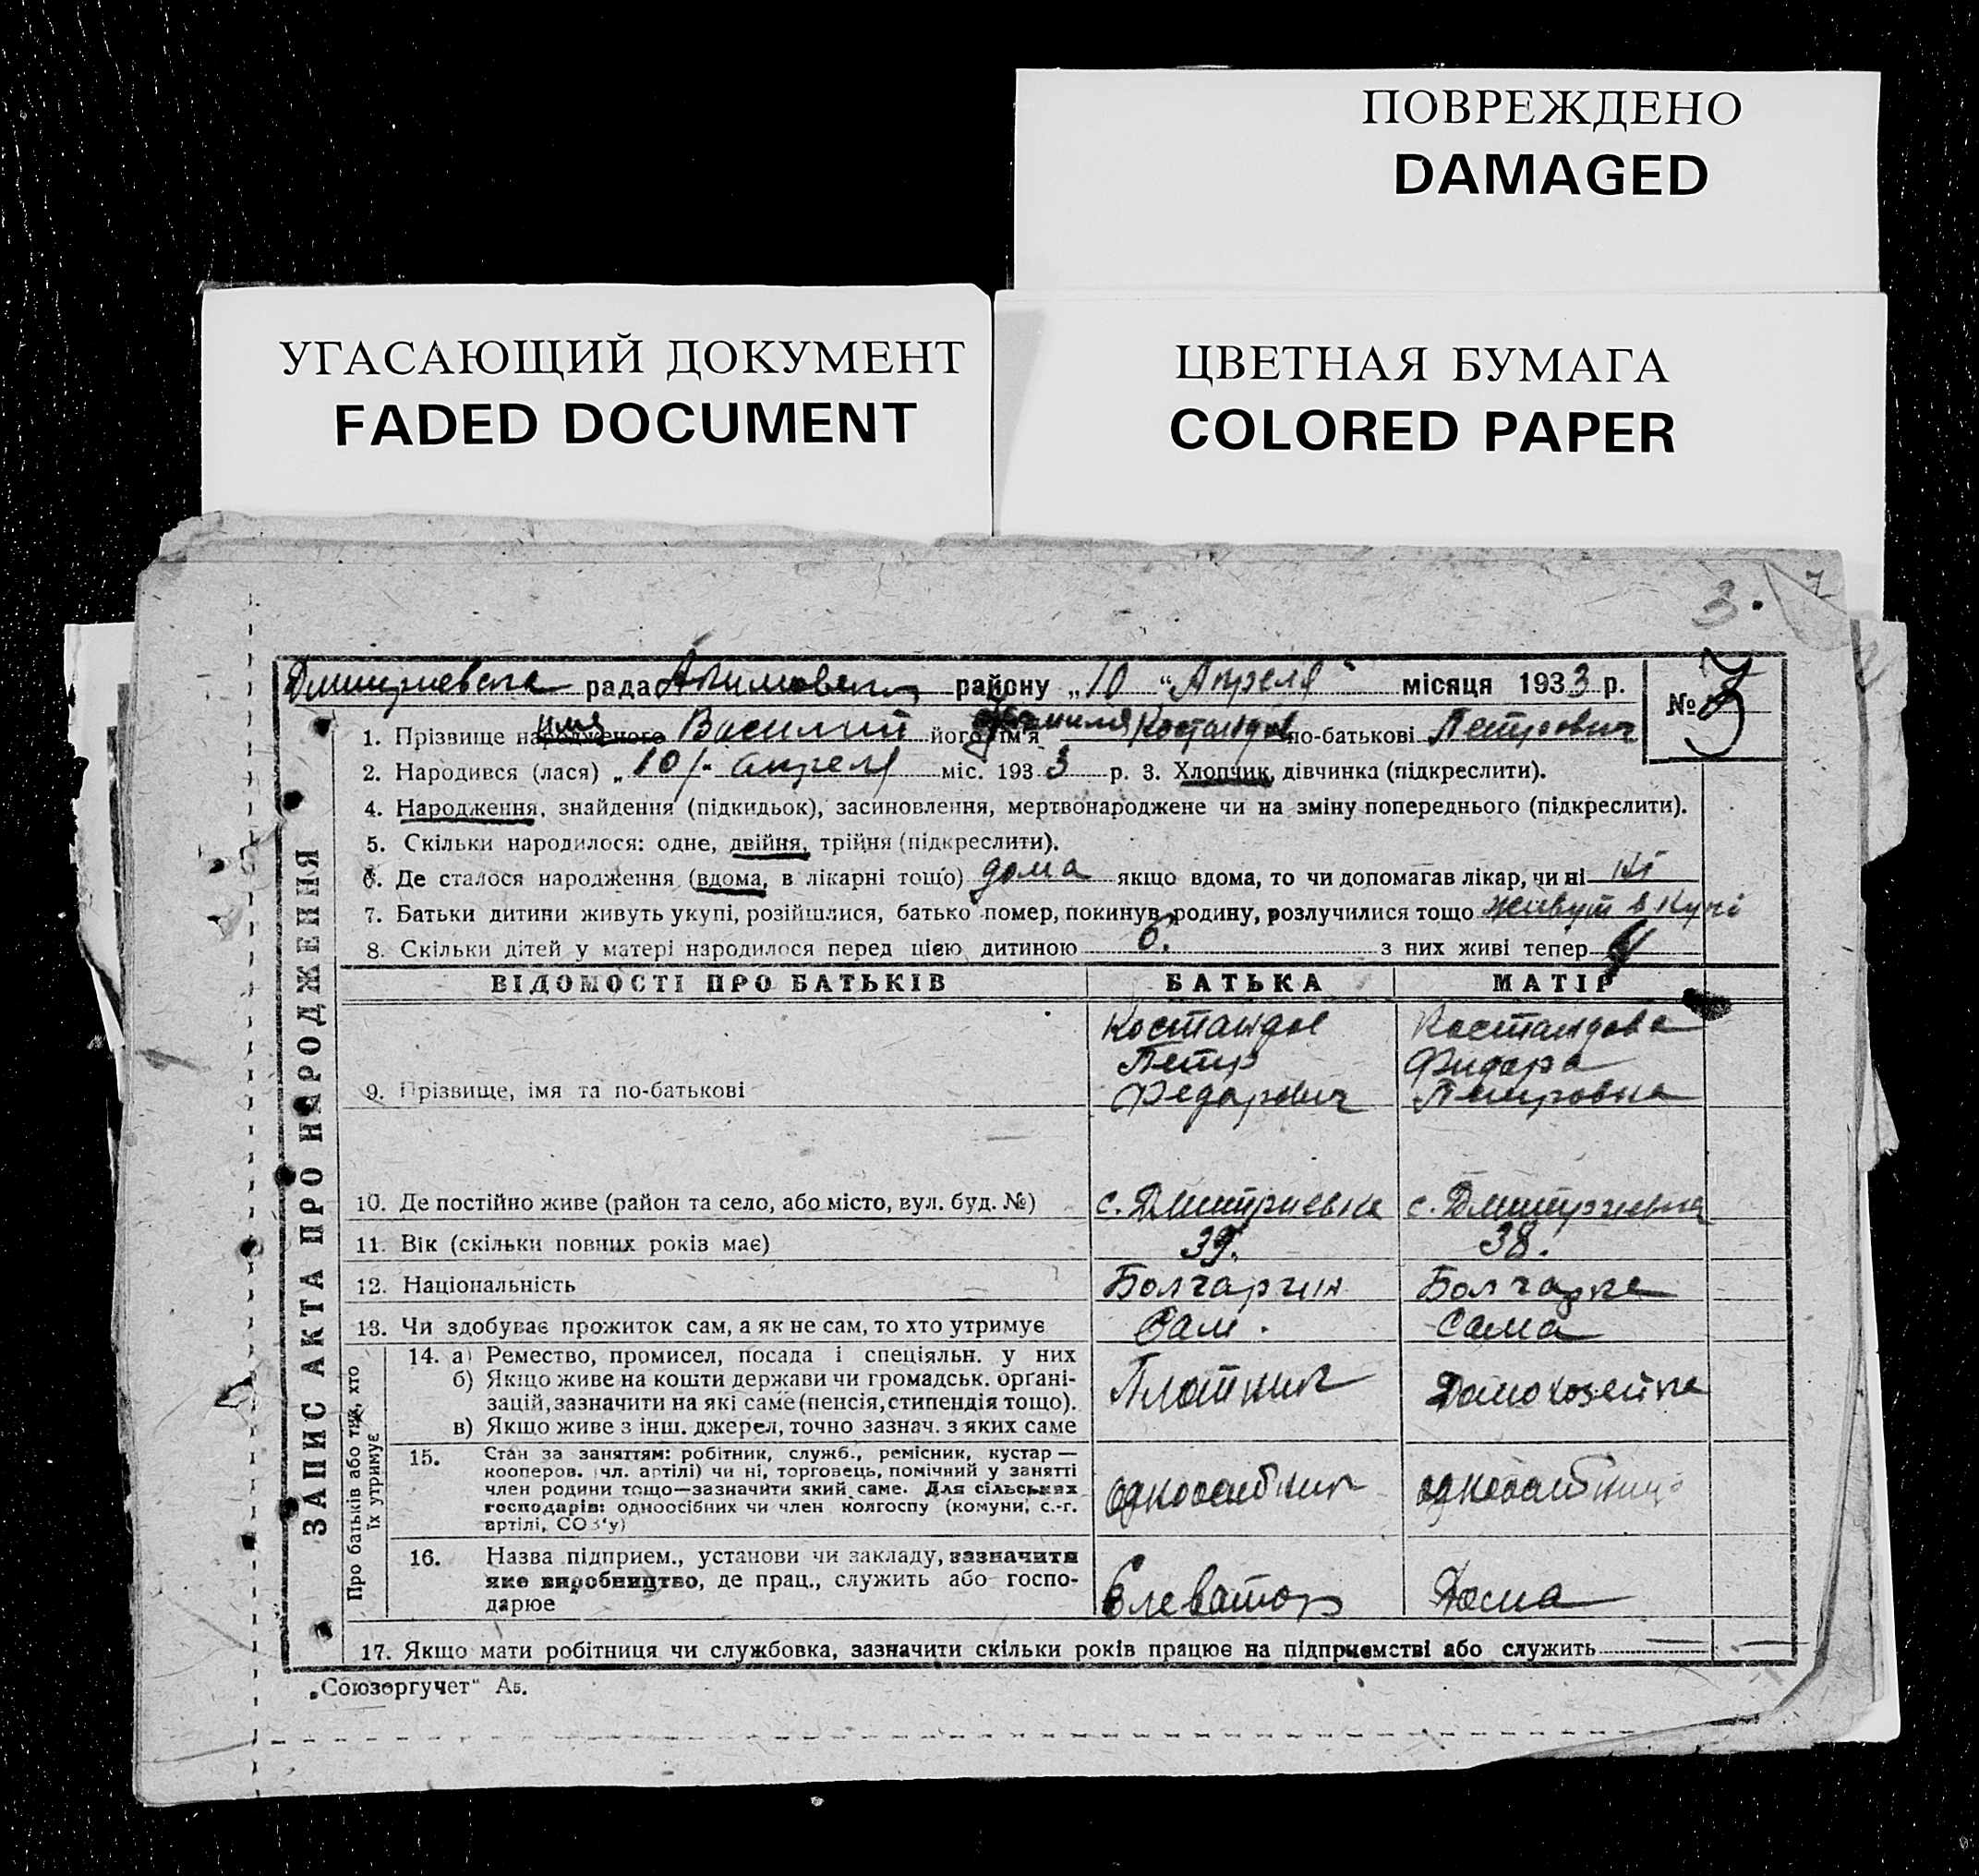 ПОВРЕЖДЕНО
DAMAGED
УГАСАЮЩИЙ ДОКУМЕНТ
FADED DOCUMENT
ЦВЕТНАЯ БУМАГА
COLORED PAPER
3.
7
Дмитриевка рада Акимовск району „10 “ Апреля місяця 1933 р.
№ 3
1. Прізвище народженого имя Василий його ім'я фамилия Костандов по-батькові Петрович
2. Народився (лася) „10/- апреля міс. 1933 р. 3. Хлопчик, дівчинка (підкреслити).
4. Народження, знайдення (підкидьок), засиновлення, мертвонароджене чи на зміну попереднього (підкреслити).
5. Скільки народилося: одне, двійня, трійня (підкреслити).
6. Де сталося народження (вдома, в лікарні тощо) дома якщо вдома, то чи допомагав лікар, чи ні ні
7. Батьки дитини живуть укупі, розійшлися, батько помер, покинув родину, розлучилися тощо живут в купі
8. Скільки дітей у матері народилося перед цією дитиною 6. з них живі тепер
ЗАПИС АКТА ПРО НАРОДЖЕННЯ
ВІДОМОСТІ ПРО БАТЬКІВ БАТЬКА МАТІР
Костандов Костандова
Петр Фидора
9. Прізвище, імя та по-батькові Федорович Петровна
10. Де постійно живе (район та село, або місто, вул. буд. №) с. Дмитриевка с. Дмитриевка
11. Вік (скільки повних років має) 39. 38.
12. Національність Болгарин Болгарка
13. Чи здобуває прожиток сам, а як не сам, то хто утримує Сам. Сама
Про батьків або тих, хто їх утримує
14. а) Ремество, промисел, посада і спеціяльн. у них
б) Якщо живе на кошти держави чи громадськ. орґані-
зацій, зазначити на які саме (пенсія, стипендія тощо). Плотник Домохозейка
в) Якщо живе з інш. джерел, точно зазнач. з яких саме
15. Стан за заняттям: робітник, служб., ремісник, кустар —
кооперов. (чл. артілі) чи ні, торговець, помічний у занятті
член родини тощо—зазначити який саме. Для сільських
господарів: одноосібних чи член колгоспу (комуни, с.-г.
артілі, СОЗ'у)
одноосібник одноосібниця
16. Назва підприем., установи чи закладу, зазначити
яке виробництво, де прац., служить або госпо-
дарює Елеватор Дома
17. Якщо мати робітниця чи службовка, зазначити скільки років працює на підприемстві або служить
„Союзоргучет“ А5.